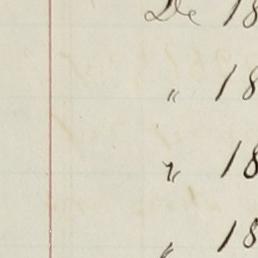 De 18
" 18
" 18
" 18